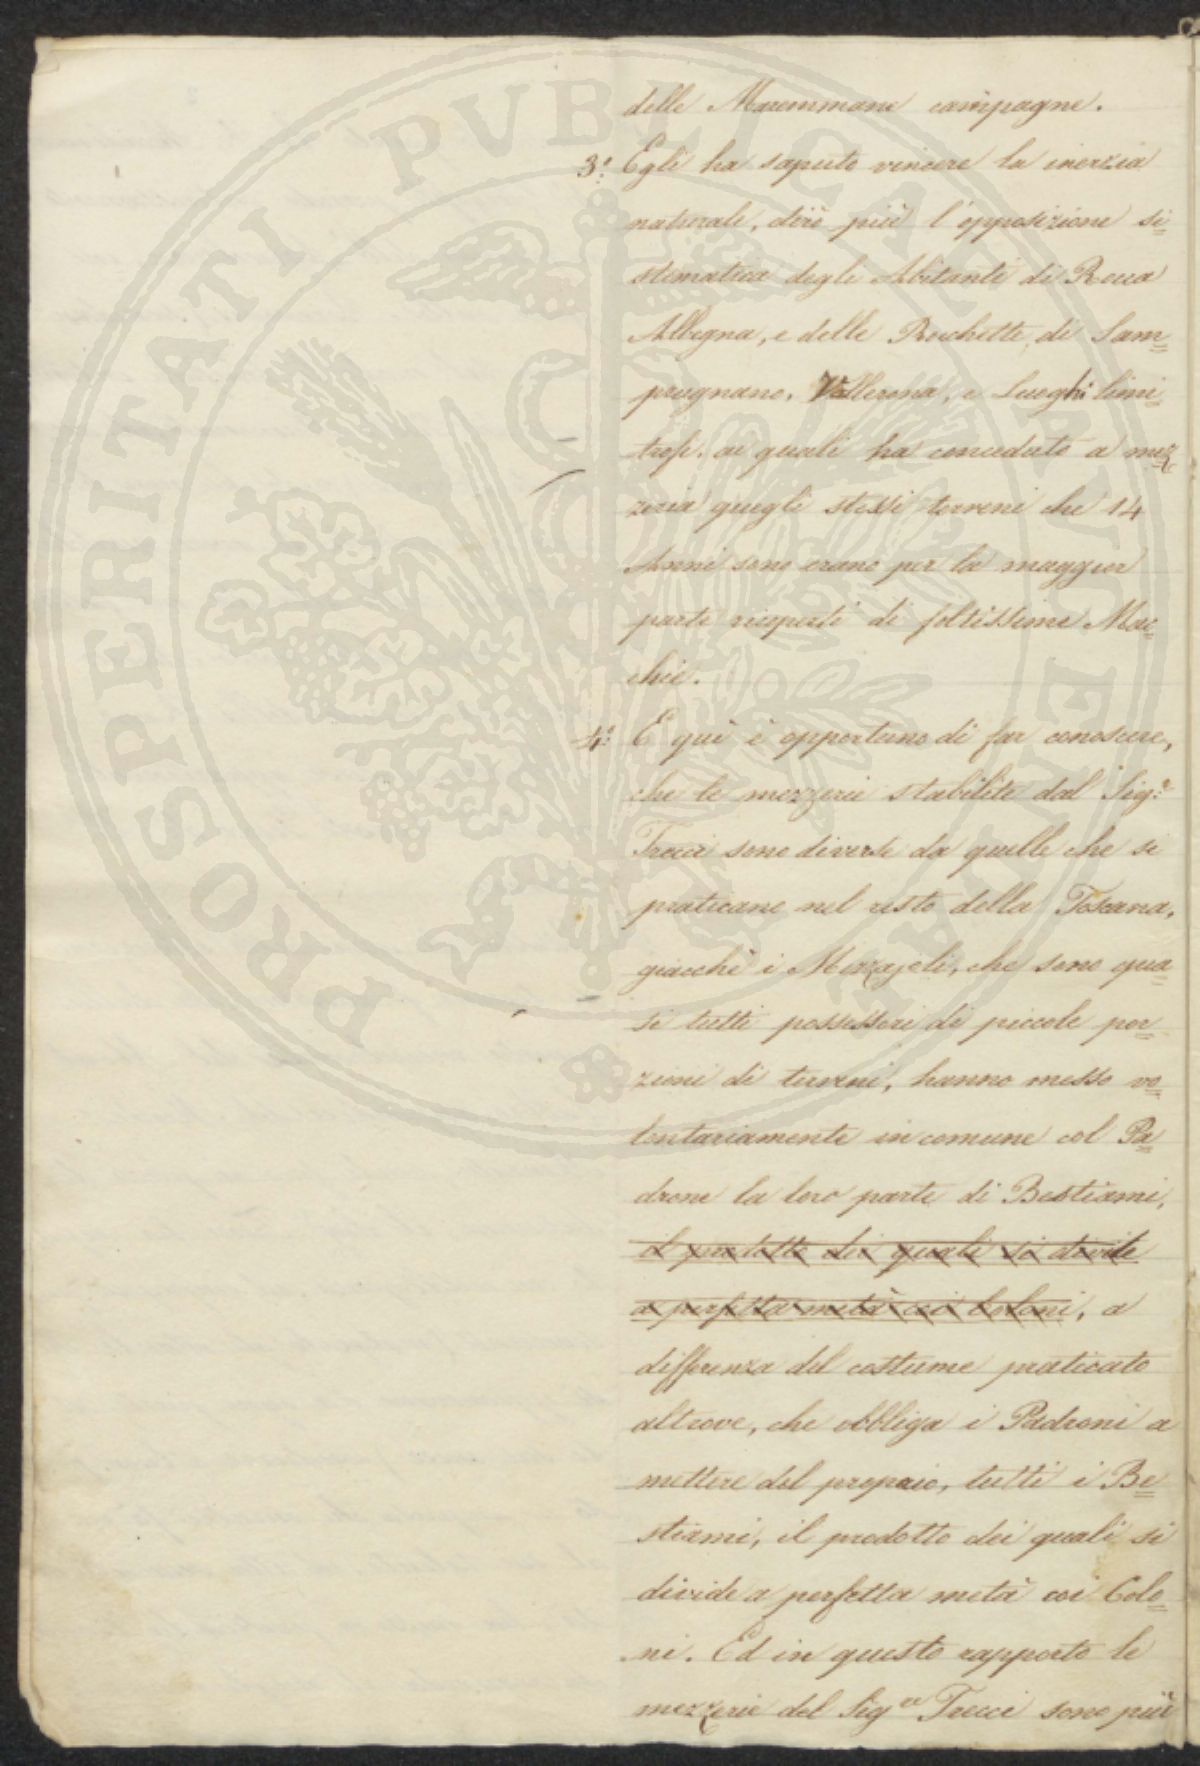 delle Maremmane campagne.
3.° Egli ha saputo vincere la inerzia
naturale, dirò più l'opposizione si=
stematica degli Abitanti di Rocca
Albegna, e delle Rochette, di Sam=
prugnano, Vallerona, e Luoghi limi=
trofi, ai quali ha conceduto a mez=
zeria quegli stessi terreni che 14
Anni sono erano per la maggior
parte ricoperti di foltissime Mac=
chie.
4.° E quì è opportuno di far conoscere,
che le mezzerie stabilite dal Sig.r
Trecci sono diverse da quelle che si
praticano nel resto della Toscana,
giacchè i Mezzajoli, che sono qua=
si tutti possessori di piccole por=
zioni di terreni, hanno messo vo=
lontariamente in comune col Pa=
drone la loro parte di Bestiami,
il prodotto dei quali si divide
a perfetta metà coi Coloni, a
differenza del costume praticato
altrove, che obbliga i Padroni a
mettere del proprio, tutti i Be=
stiami, il prodotto dei quali si
divide a perfetta metà coi Colo=
ni. Ed in questo rapporto le
mezzerie del Sig.re Trecci sono più
PROSPERITATI PUBLICAE AUGENDAE